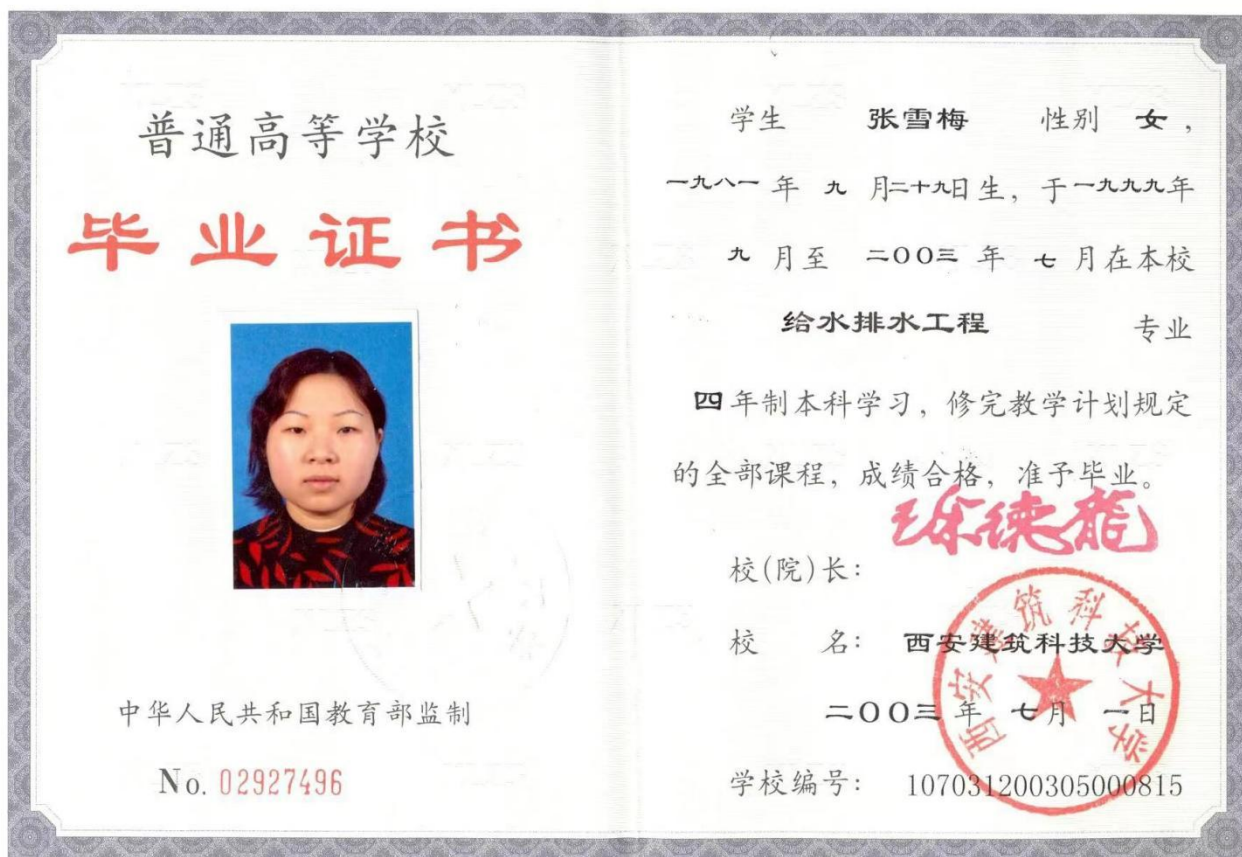 普通高等学校
毕业证书
中华人民共和国教育部监制
No. 02927496
学生 张雪梅 性别 女,
一九八一 年 九 月二十九日生, 于一九九九年
九 月至 二〇〇三 年 七 月在本校
给水排水工程 专业
四年制本科学习, 修完教学计划规定
的全部课程, 成绩合格, 准予毕业。
校(院)长:
校 名: 西安建筑科技大学
二〇〇三 年 七月 一日
学校编号: 107031200305000815
西安建筑科技大学